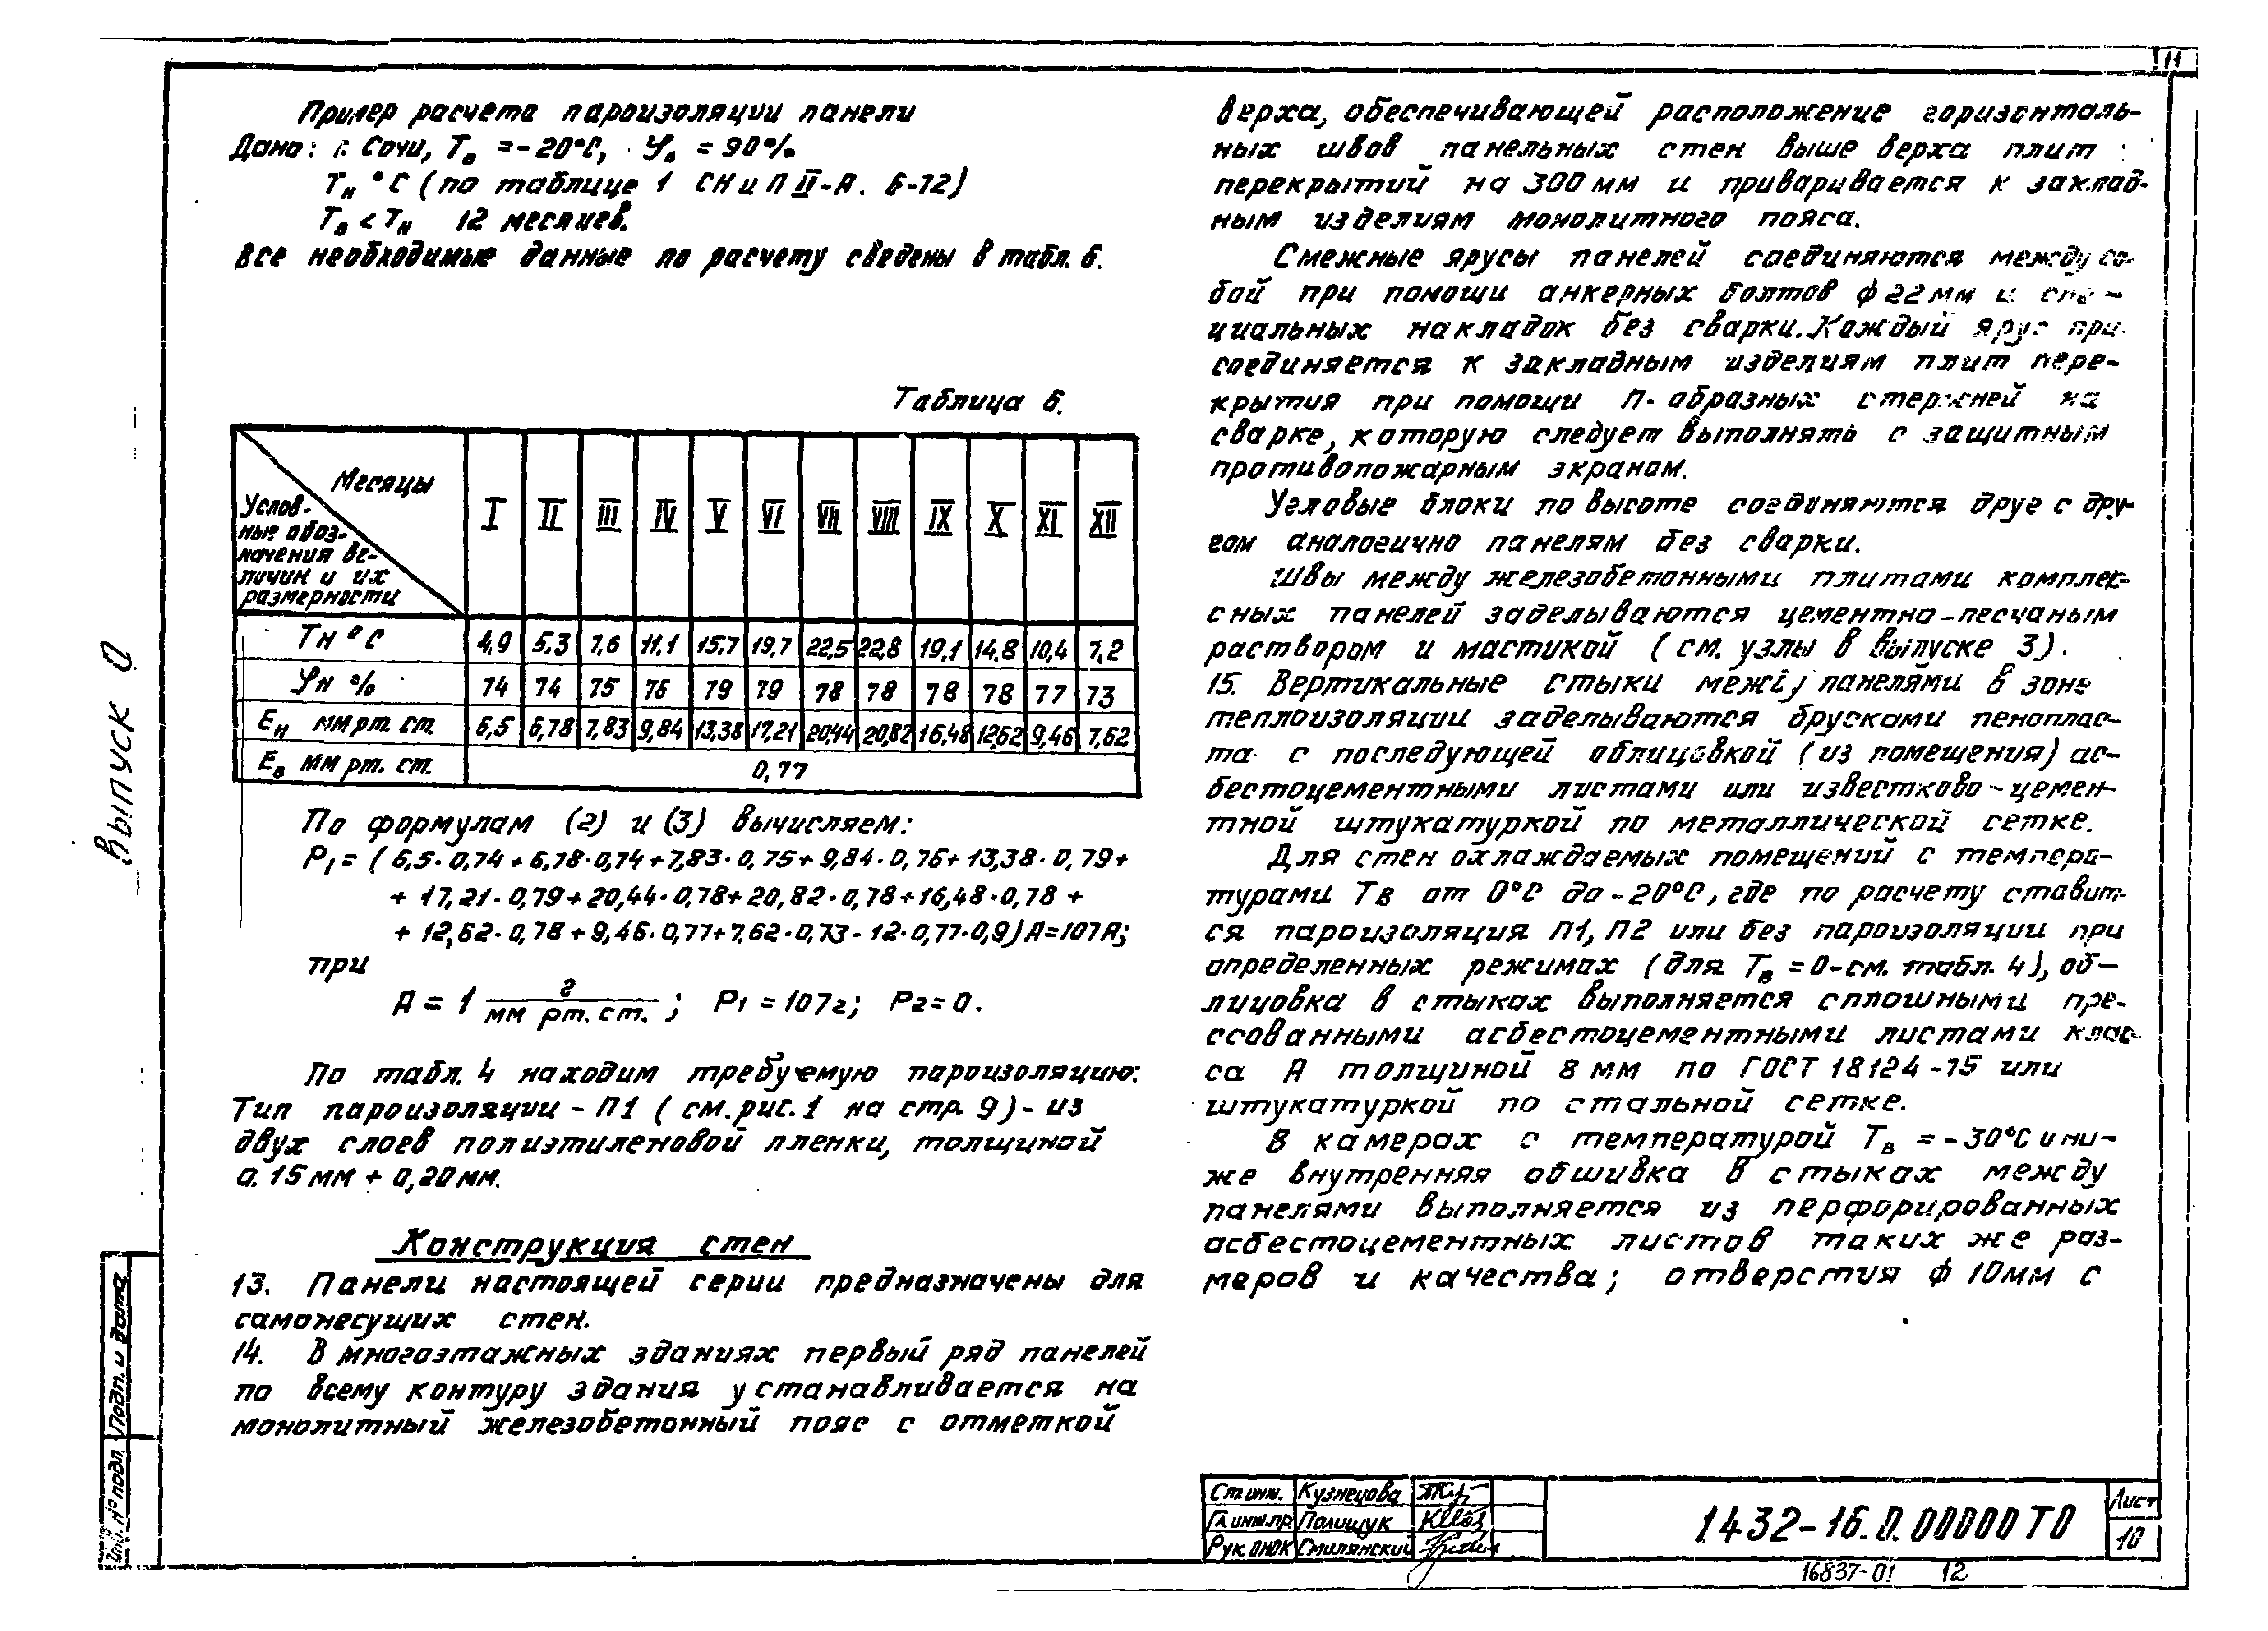 11
Пример расчета пароизоляции панели
Дано: г. Сочи, Tв = -20°C, φв = 90%
Tн °C (по таблице 1 СНиП II-А. 6-72)
Tв < Tн 12 месяцев.
Все необходимые данные по расчету сведены в табл. 6.
Таблица 6.
Месяцы
Услов-
ные обоз-
начения ве-
личин и их
размерности
I II III IV V VI VII VIII IX X XI XII
Tн °C 4,9 5,3 7,6 11,1 15,7 19,7 22,5 22,8 19,1 14,8 10,4 7,2
φн % 74 74 75 76 79 79 78 78 78 78 77 73
Eн мм рт. ст. 6,5 6,78 7,83 9,84 13,38 17,21 20,44 20,82 16,48 12,62 9,46 7,62
Eв мм рт. ст. 0,77
По формулам (2) и (3) вычисляем:
P1 = (6,5·0,74 + 6,78·0,74 + 7,83·0,75 + 9,84·0,76 + 13,38·0,79 +
+ 17,21·0,79 + 20,44·0,78 + 20,82·0,78 + 16,48·0,78 +
+ 12,62·0,78 + 9,46·0,77 + 7,62·0,73 - 12·0,77·0,9) A = 107 A;
при
A = 1 г / мм рт. ст. ; P1 = 107г; P2 = 0.
По табл. 4 находим требуемую пароизоляцию:
Тип пароизоляции - П1 (см. рис. 1 на стр. 9) - из
двух слоев полиэтиленовой пленки, толщиной
0,15 мм + 0,20 мм.
Конструкция стен
13. Панели настоящей серии предназначены для
самонесущих стен.
14. В многоэтажных зданиях первый ряд панелей
по всему контуру здания устанавливается на
монолитный железобетонный пояс с отметкой
верха, обеспечивающей расположение горизонталь-
ных швов панельных стен выше верха плит
перекрытий на 300 мм и приваривается к заклад-
ным изделиям монолитного пояса.
Смежные ярусы панелей соединяются между со-
бой при помощи анкерных болтов ф 22 мм и спе-
циальных накладок без сварки. Каждый ярус при-
соединяется к закладным изделиям плит пере-
крытия при помощи П-образных стержней на
сварке, которую следует выполнять с защитным
противопожарным экраном.
Угловые блоки по высоте соединяются друг с дру-
гом аналогично панелям без сварки.
Швы между железобетонными плитами комплек-
сных панелей заделываются цементно-песчаным
раствором и мастикой (см. узлы в выпуске 3).
15. Вертикальные стыки между панелями в зоне
теплоизоляции заделываются брусками пенoплас-
та с последующей облицовкой (из помещения) ас-
бестоцементными листами или известково-цемен-
тной штукатуркой по металлической сетке.
Для стен охлаждаемых помещений с темпера-
турами Tв от 0°C до -20°C, где по расчету ставит-
ся пароизоляция П1, П2 или без пароизоляции при
определенных режимах (для Tв = 0-см. табл. 4), об-
лицовка в стыках выполняется сплошными пре-
ссованными асбестоцементными листами клас-
са А толщиной 8 мм по ГОСТ 18124-75 или
штукатуркой по стальной сетке.
В камерах с температурой Tв = -30°C и ни-
же внутренняя обшивка в стыках между
панелями выполняется из перфорированных
асбестоцементных листов таких же раз-
меров и качества; отверстия ф 10мм с
Выпуск 0
Подп. и дата
Инв. № подл.
Ст. инж. Кузнецова
Гл. инж. пр Полищук
Рук. ОНОК Смилянский
1.432-16.0.00000 ТО
Лист
10
16837-01 12